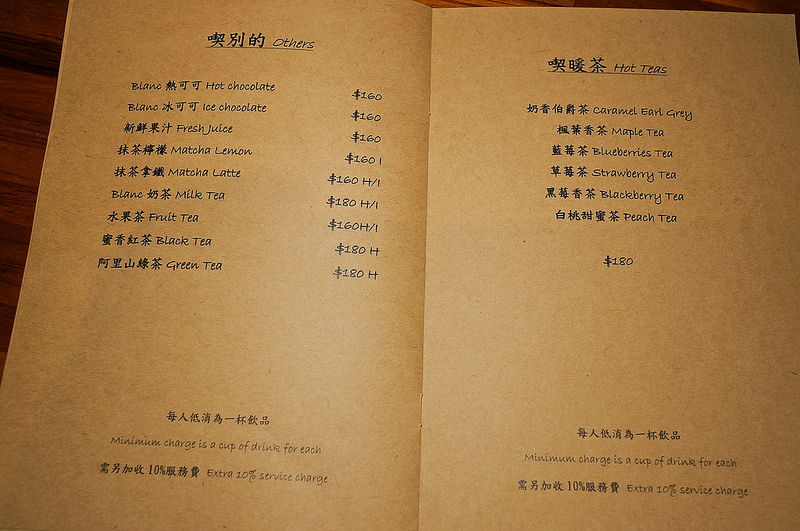 喫別的 Others
Blanc 熱可可 Hot chocolate $160
Blanc 冰可可 Ice chocolate $160
新鮮果汁 Fresh Juice $160
抹茶檸檬 Matcha Lemon $160 I
抹茶拿鐵 Matcha Latte $160 H/I
Blanc 奶茶 Milk Tea $180 H/I
水果茶 Fruit Tea $160H/I
蜜香紅茶 Black Tea $180 H
阿里山綠茶 Green Tea $180 H
每人低消為一杯飲品
Minimum charge is a cup of drink for each
需另加收 10%服務費 Extra 10% service charge
喫暖茶 Hot Teas
奶香伯爵茶 Caramel Earl Grey
楓葉香茶 Maple Tea
藍莓茶 Blueberries Tea
草莓茶 Strawberry Tea
黑莓香茶 Blackberry Tea
白桃甜蜜茶 Peach Tea
$180
每人低消為一杯飲品
Minimum charge is a cup of drink for each
需另加收 10%服務費 Extra 10% service charge